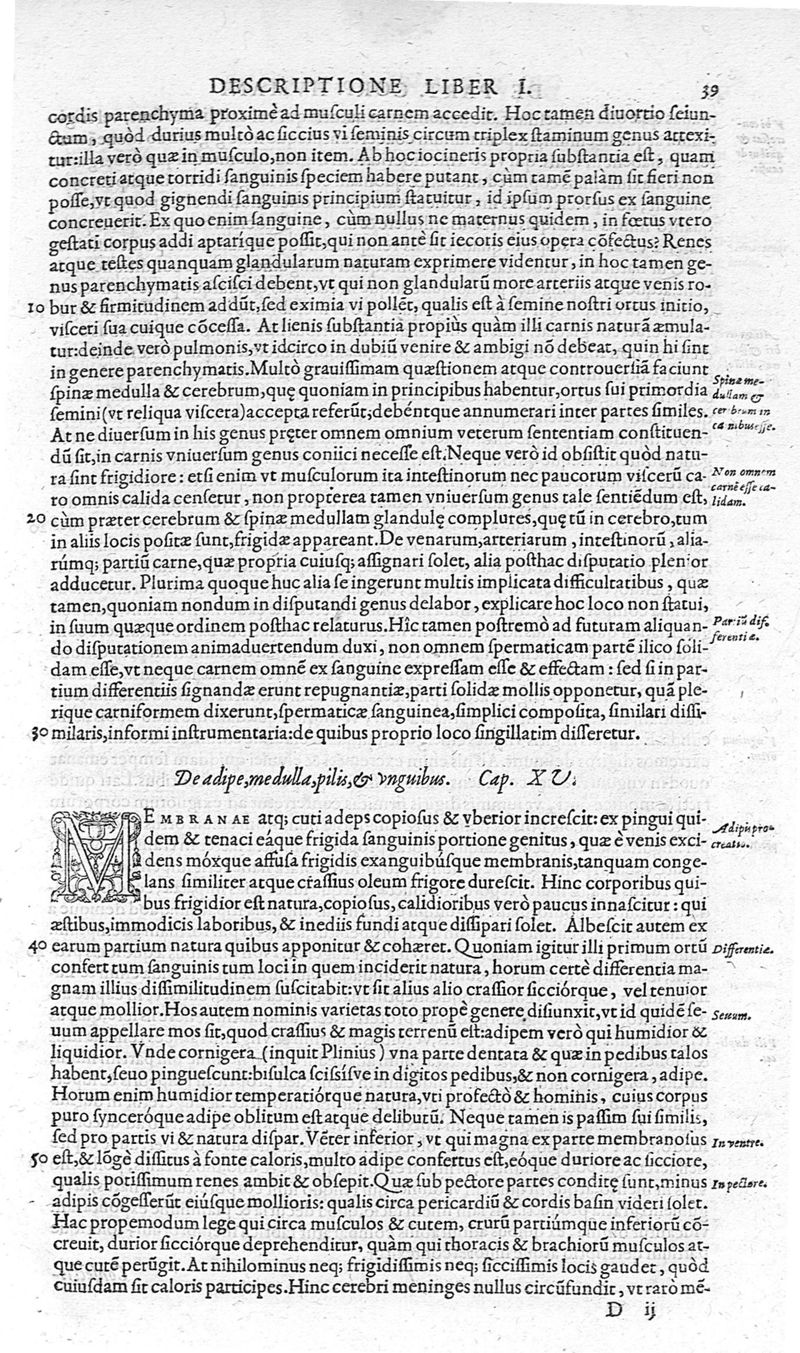 DESCRIPTIONE LIBER I. 39
cordis parenchyma proximè ad musculi carnem accedit. Hoc tamen diuortio seiun-
ctum, quòd durius multò ac siccius vi seminis circum triplex staminum genus attexi-
tur: illa verò quæ in musculo, non item. Ab hoc iocineris propria substantia est, quam
concreti atque torridi sanguinis speciem habere putant, cùm tamẽ palàm sit fieri non
posse, vt quod gignendi sanguinis principium statuitur, id ipsum prorsus ex sanguine
concreuerit. Ex quo enim sanguine, cùm nullus ne maternus quidem, in fœtus vtero
gestati corpus addi aptaríque possit, qui non antè sit iecoris eius opera cõfectus? Renes
atque testes quanquam glandularum naturam exprimere videntur, in hoc tamen ge-
nus parenchymatis ascisci debent, vt qui non glandularũ more arteriis atque venis ro-
10 bur & firmitudinem addũt, sed eximia vi pollẽt, qualis est à semine nostri ortus initio,
visceri sua cuique cõcessa. At lienis substantia propiùs quàm illi carnis naturã æmula-
tur: deinde verò pulmonis, vt idcirco in dubiũ venire & ambigi nõ debeat, quin hi sint
in genere parenchymatis. Multò grauissimam quæstionem atque controuersiã faciunt
spinæ medulla & cerebrum, quę quoniam in principibus habentur, ortus sui primordia
Spinæ me-
dullam &
cerebrum in
carnibus esse.
semini (vt reliqua viscera) accepta referũt; debéntque annumerari inter partes similes.
At ne diuersum in his genus pręter omnem omnium veterum sententiam constituen-
dũ sit, in carnis vniuersum genus coniici necesse est. Neque verò id obsistit quòd natu-
ra sint frigidiore: etsi enim vt musculorum ita intestinorum nec paucorum viscerũ ca-
Non omnem
carnẽ esse ca-
lidam.
ro omnis calida censetur, non propterea tamen vniuersum genus tale sentiẽdum est,
20 cùm præter cerebrum & spinæ medullam glandulę complures, quę tũ in cerebro, tum
in aliis locis positæ sunt, frigidæ appareant. De venarum, arteriarum, intestinorũ, alia-
rúmq; partiũ carne, quæ propria cuiusq; assignari solet, alia posthac disputatio plenior
adducetur. Plurima quoque huc alia se ingerunt multis implicata difficultatibus, quæ
tamen, quoniam nondum in disputandi genus delabor, explicare hoc loco non statui,
in suum quæque ordinem posthac relaturus. Hîc tamen postremò ad futuram aliquan-
Partiũ dif-
ferentiæ.
do disputationem animaduertendum duxi, non omnem spermaticam partẽ ilico soli-
dam esse, vt neque carnem omnẽ ex sanguine expressam esse & effectam: sed si in par-
tium differentiis signandæ erunt repugnantiæ, parti solidæ mollis opponetur, quã ple-
rique carniformem dixerunt, spermaticæ sanguinea, simplici composita, similari dissi-
30 milaris, informi instrumentaria: de quibus proprio loco singillatim differetur.
De adipe, medulla, pilis, & vnguibus. Cap. XV.
MEMBRANAE atq; cuti adeps copiosus & vberior increscit: ex pingui qui-
Adipis pro-
creatio.
dem & tenaci eáque frigida sanguinis portione genitus, quæ è venis exci-
dens móxque affusa frigidis exanguibúsque membranis, tanquam conge-
lans similiter atque crassius oleum frigore durescit. Hinc corporibus qui-
bus frigidior est natura, copiosus, calidioribus verò paucus innascitur: qui
æstibus, immodicis laboribus, & inediis fundi atque dissipari solet. Albescit autem ex
40 earum partium natura quibus apponitur & cohæret. Quoniam igitur illi primum ortũ
Differentiæ.
confert tum sanguinis tum loci in quem inciderit natura, horum certè differentia ma-
gnam illius dissimilitudinem suscitabit: vt sit alius alio crassior sicciórque, vel tenuior
atque mollior. Hos autem nominis varietas toto propè genere disiunxit, vt id quidẽ se-
Seuum.
uum appellare mos sit, quod crassius & magis terrenũ est: adipem verò qui humidior &
liquidior. Vnde cornigera (inquit Plinius) vna parte dentata & quæ in pedibus talos
habent, seuo pinguescunt: bisulca scissísve in digitos pedibus, & non cornigera, adipe.
Horum enim humidior temperatiórque natura, vti profectò & hominis, cuius corpus
puro synceróque adipe oblitum est atque delibutũ. Neque tamen is passim sui similis,
sed pro partis vi & natura dispar. Vẽter inferior, vt qui magna ex parte membranosus
In ventre.
50 est, & lõgè dissitus à fonte caloris, multo adipe confertus est, eóque duriore ac sicciore,
qualis potissimum renes ambit & obsepit. Quæ sub pectore partes conditę sunt, minus
In pectore.
adipis cõgesserũt eiúsque mollioris: qualis circa pericardiũ & cordis basin videri solet.
Hac propemodum lege qui circa musculos & cutem, crurũ partiúmque inferiorũ cõ-
creuit, durior sicciórque deprehenditur, quàm qui thoracis & brachiorũ musculos at-
que cutẽ perũgit. At nihilominus neq; frigidissimis neq; siccissimis locis gaudet, quòd
cuiusdam sit caloris particeps. Hinc cerebri meninges nullus circũfundit, vt raro mẽ-
D ij